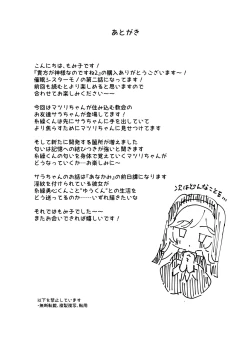 あとがき
こんにちは、もみ子です！
『貴方が神様なのですね2』の購入ありがとうございます〜！
催眠シスターモノの第二話になってます！
前回も読むとより楽しめると思いますので
合わせてお楽しみください〜〜
今回はマツリちゃんが住み込む教会の
お友達サラちゃんが登場してます！
糸緒くんは先にサラちゃんに手を出していて
より焦らすためにマツリちゃんに見せつけてます
そして新たに開発する箇所が増えました
匂いは記憶への結びつきが強いと聞きます
糸緒くんの匂いを身体で覚えていくマツリちゃんが
どうなっていくか…お楽しみに〜
サラちゃんのお話は『あなたの』の前日譚になります
淫紋を付けられている彼女が
糸緒真心くんこと"ゆうくん"との生活を
どう送ってるのか……いずれ描きたいな
それではもみ子でした〜
またお会いできれば嬉しいです！
次はどんなことを…
以下を禁止しています
・無断転載、複製複写、転用